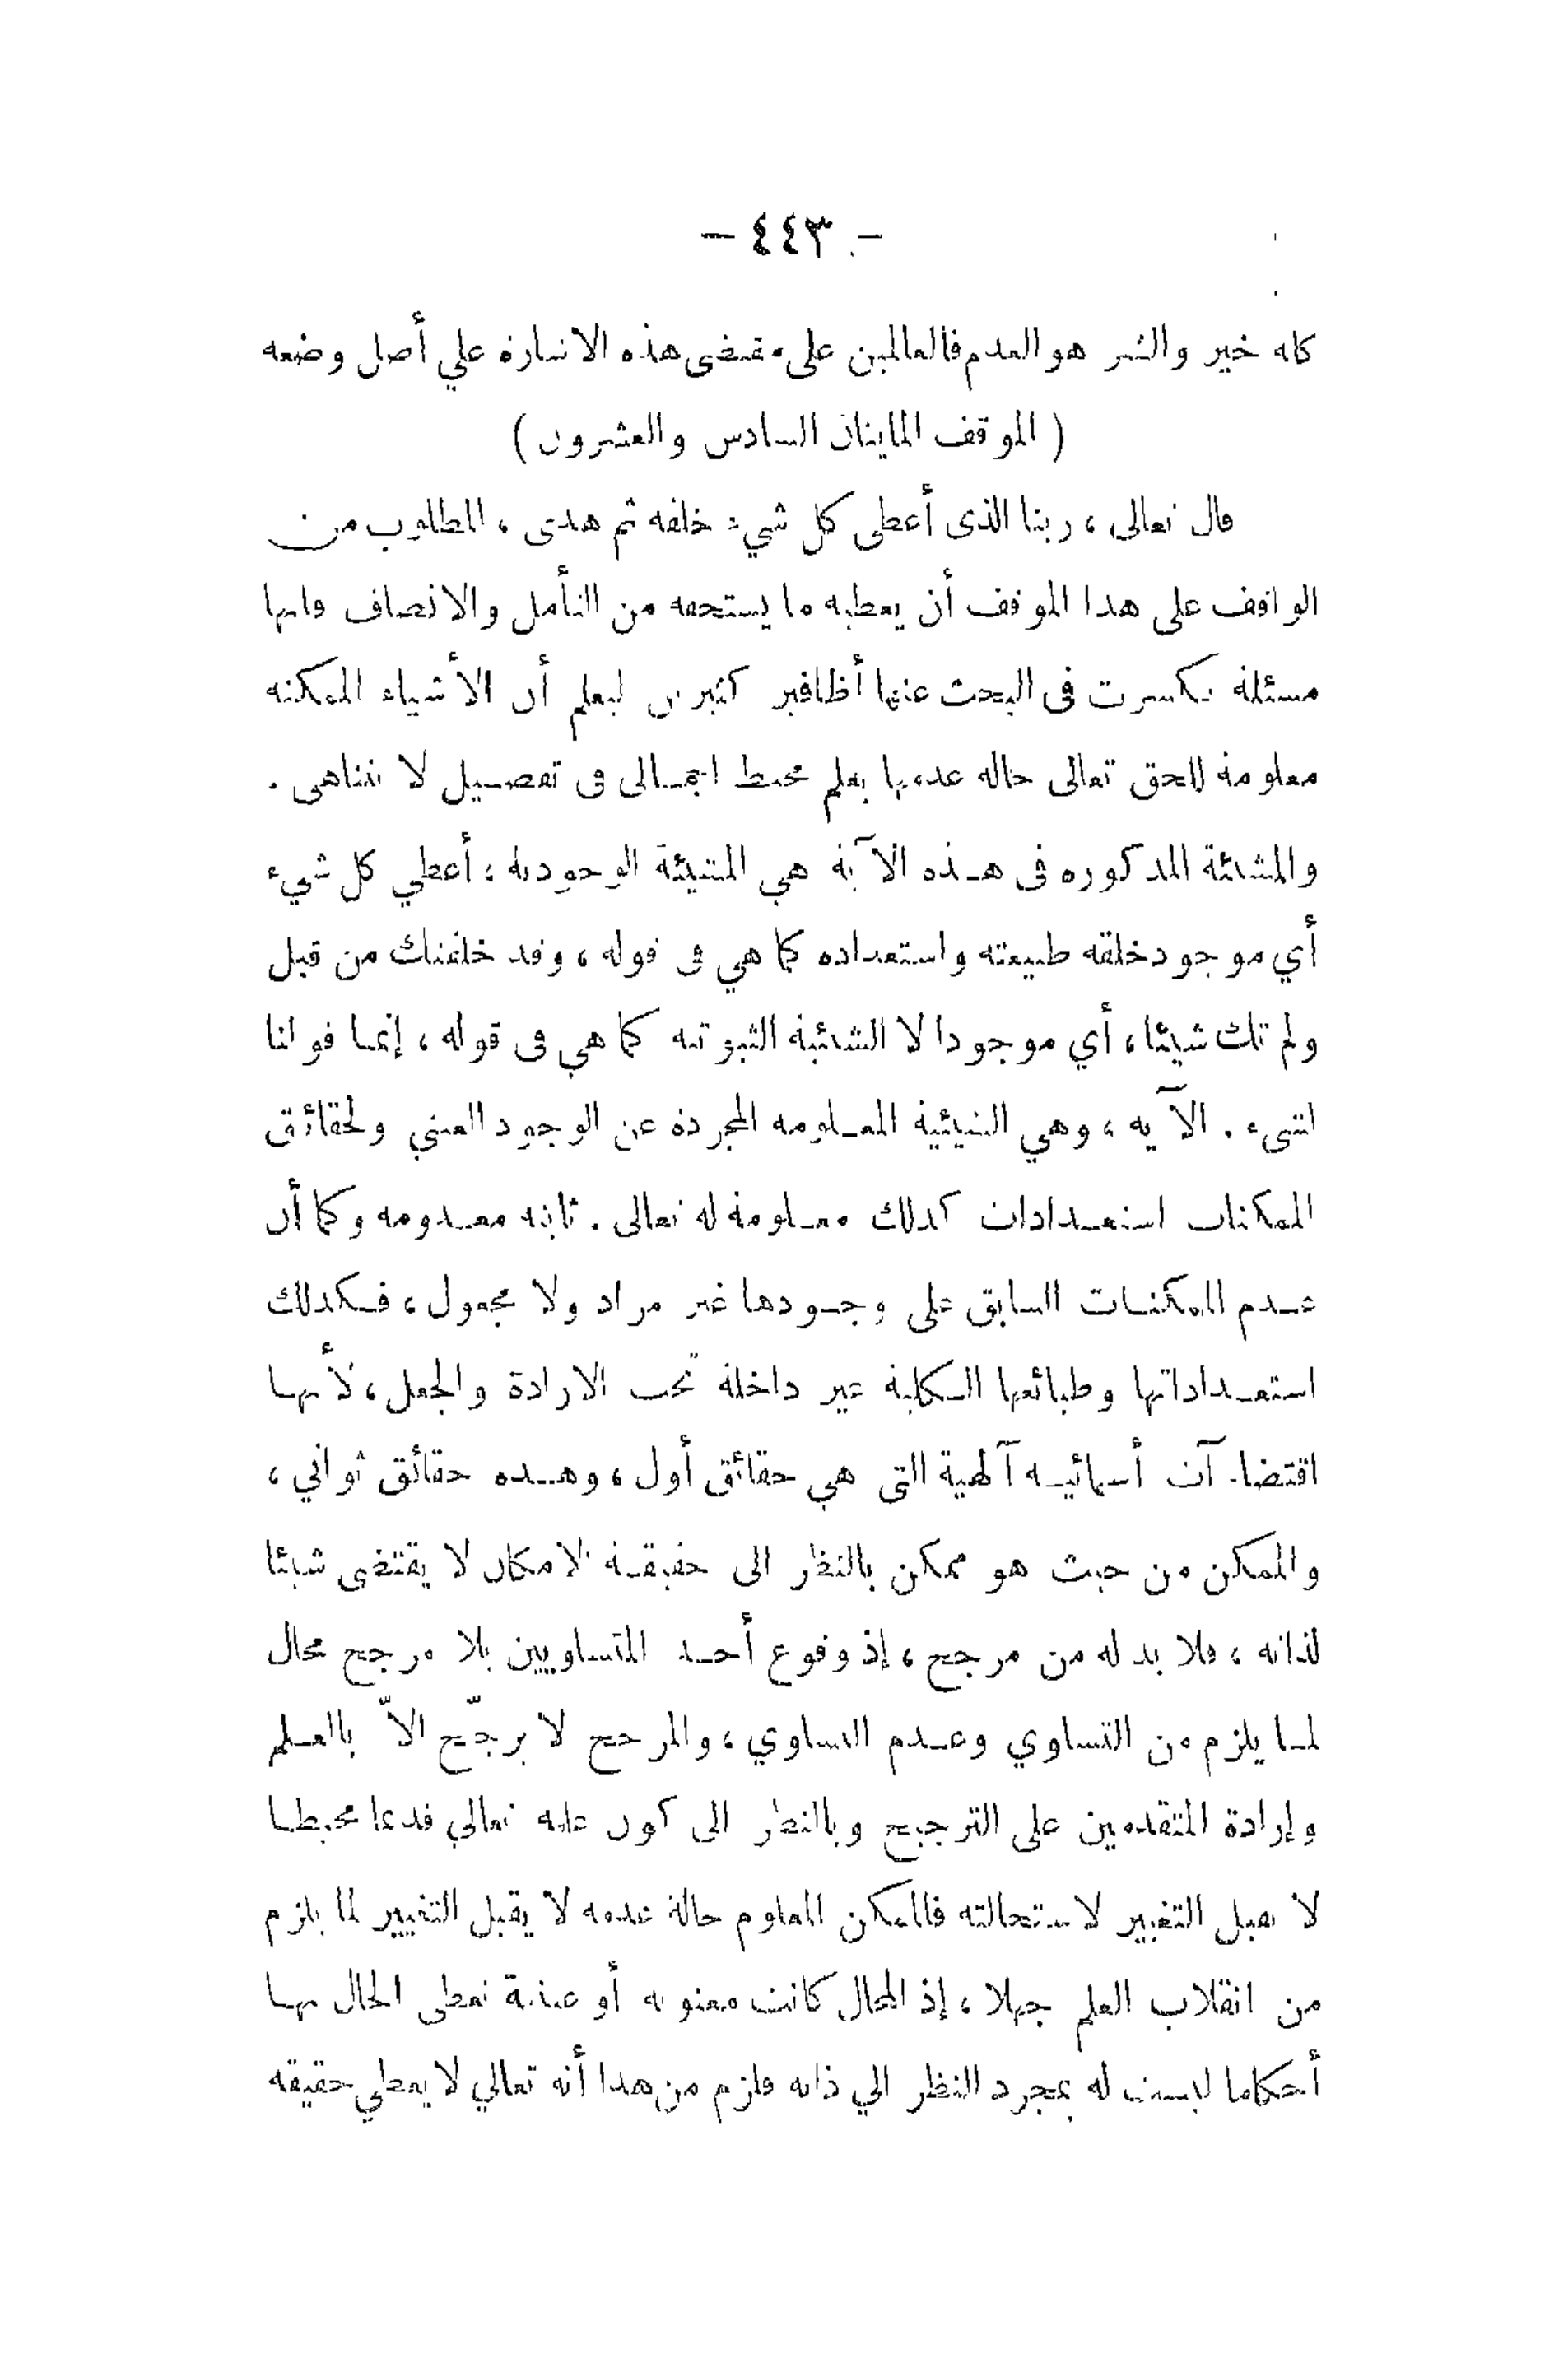 — ٤٤٣ —
كله خير والشر هو العدم فالعالمين على مقتضى هذه الاشارة علي أصل وضعه
( الموقف المايتان السادس والعشرون )
قال تعالى ، ربنا الذى أعطى كل شيء خلقه ثم هدى ، المطلوب من
الواقف على هذا الموقف أن يعطيه ما يستحقه من التأمل والانصاف فانها
مسئلة تكسرت فى البحث عنها أظافير كثيرين ليعلم أن الأشياء الممكنة
معلومة للحق تعالى حالة عدمها بعلم محيط اجمالى فى تفصيل لا تتناهى .
والمشيئة المذكورة فى هذه الآية هي المشيئة الوجودية ، أعطي كل شيء
أي موجود خلقه طبيعته واستعداده كما هي فى قوله ، وقد خلقتك من قبل
ولم تك شيئا ، أي موجودا لا الشيئية الثبوتية كما هي فى قوله ، إنما قولنا
لشىء . الآية ، وهي الشيئية المعلومة المجردة عن الوجود العيني ولحقائق
الممكنات استعدادات كذلك معلومة له تعالى . ثابتة معدومة وكما أن
عدم الممكنات السابق على وجودها غير مراد ولا مجعول ، فكذلك
استعداداتها وطبائعها الكلية غير داخلة تحت الارادة والجعل ، لأنها
اقتضاآت أسمائية آلهية التى هي حقائق أول ، وهذه حقائق ثواني ،
والممكن من حيث هو ممكن بالنظر الى حقيقة الامكان لا يقتضى شيئا
لذاته ، فلا بد له من مرجح ، إذ وقوع أحد المتساويين بلا مرجح محال
لما يلزم من التساوي وعدم التساوي ، والمرجح لا يرجّح الاّ بالعلم
وإرادة المتقدمين على الترجيح وبالنظر الى كون علمه تعالي قديما محيطا
لا يقبل التغيير لاستحالته فالممكن المعلوم حالة عدمه لا يقبل التغيير لما يلزم
من انقلاب العلم جهلا ، إذ المحال كانت معنوية أو عينية تعطى الحال بها
أحكاما ليست له بمجرد النظر الي ذاته فلزم من هذا أنه تعالي لا يعطي حقيقة